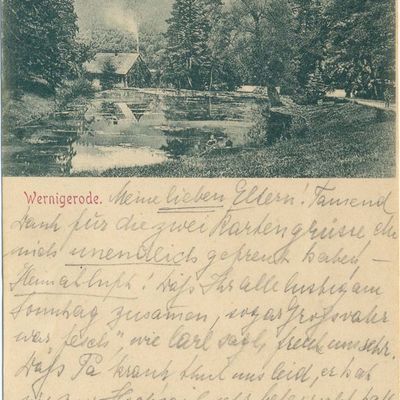 Wernigerode. Meine lieben Eltern! Tausend
Dank für die zwei Kartengrüsse die
mich unendlich gefreut haben –
Heimatluft! Dass Ihr alle lustig am
Sonntag zusamen, sogar Grossvater
war "fesch", wie Carl sagt, freut uns sehr.
Dass Pa krank thut uns leid, er hat